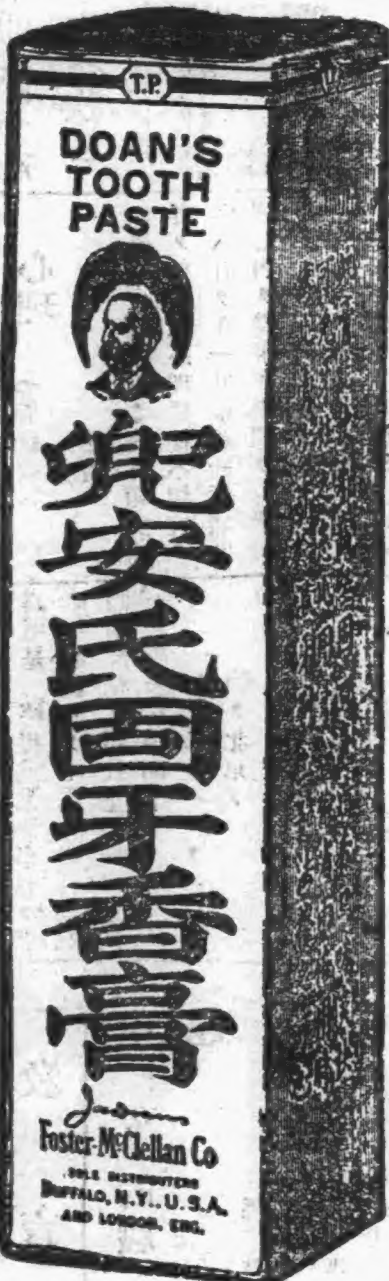 T.P.
DOAN'S
TOOTH
PASTE
兜安氏固牙香膏
Foster-McClellan Co
SOLE DISTRIBUTERS
BUFFALO, N.Y., U.S.A.
AND LONDON, ENG.